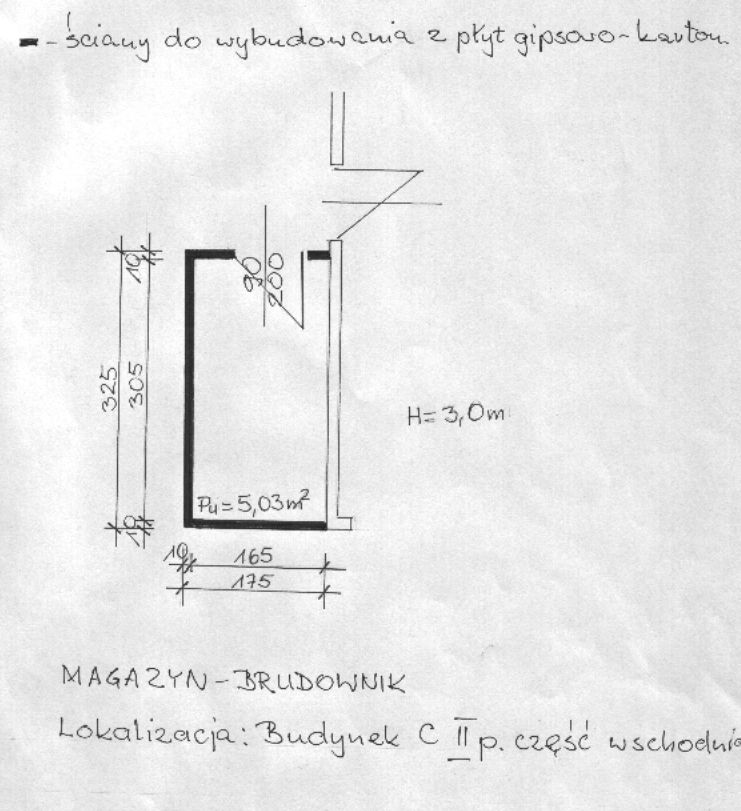 - ściany do wybudowania z płyt gipsowo-karton.
90
200
10
325
305
10
H=3,0m
Pu=5,03m²
10
165
175
MAGAZYN-BRUDOWNIK
Lokalizacja: Budynek C II p. część wschodnia